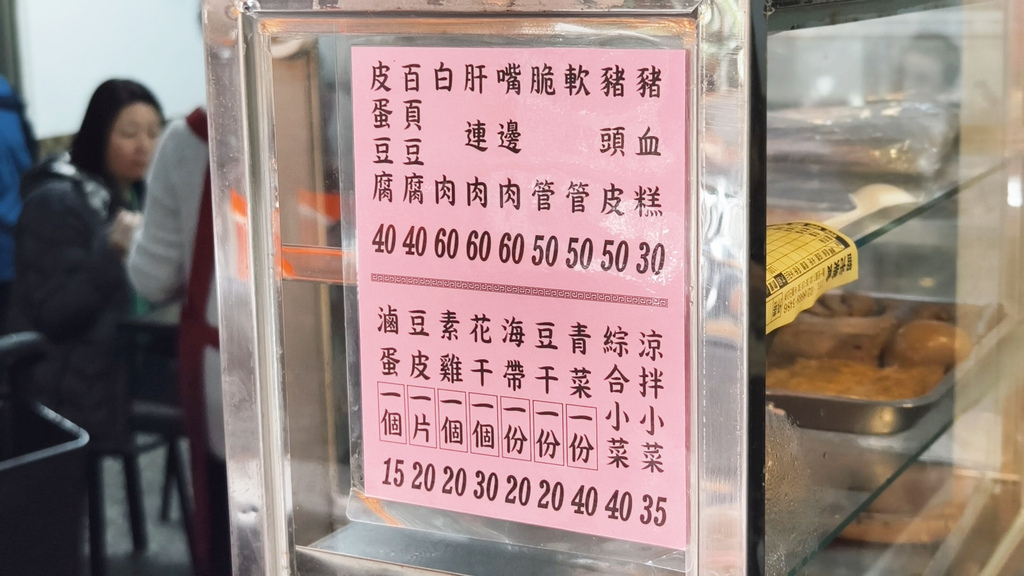 豬血糕 30
豬頭皮 50
軟管 50
脆管 50
嘴邊肉 60
肝連肉 60
白肉 60
百頁豆腐 40
皮蛋豆腐 40
涼拌小菜 35
綜合小菜 40
青菜一份 40
豆干一份 20
海帶一份 20
花干一個 30
素雞一個 20
豆皮一片 20
滷蛋一個 15